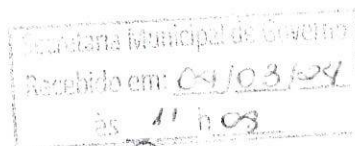 Secretaria Municipal de Governo
Recebido em: 04/03/04
às 11 h 08